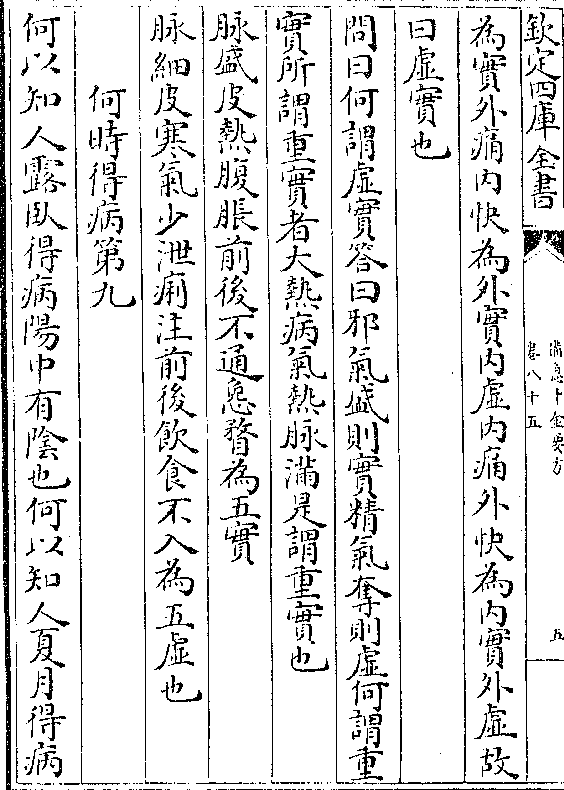 欽定四庫全書
備急千金要方
卷八十五
五
為實外痛内快為外實内虛内痛外快為内實外虛故
曰虛實也
問曰何謂虛實答曰邪氣盛則實精氣奪則虛何謂重
實所謂重實者大熱病氣熱脉滿是謂重實也
脉盛皮熱腹脹前後不通悗瞀為五實
脉細皮寒氣少泄痢注前後飲食不入為五虛也
何時得病第九
何以知人露臥得病陽中有陰也何以知人夏月得病